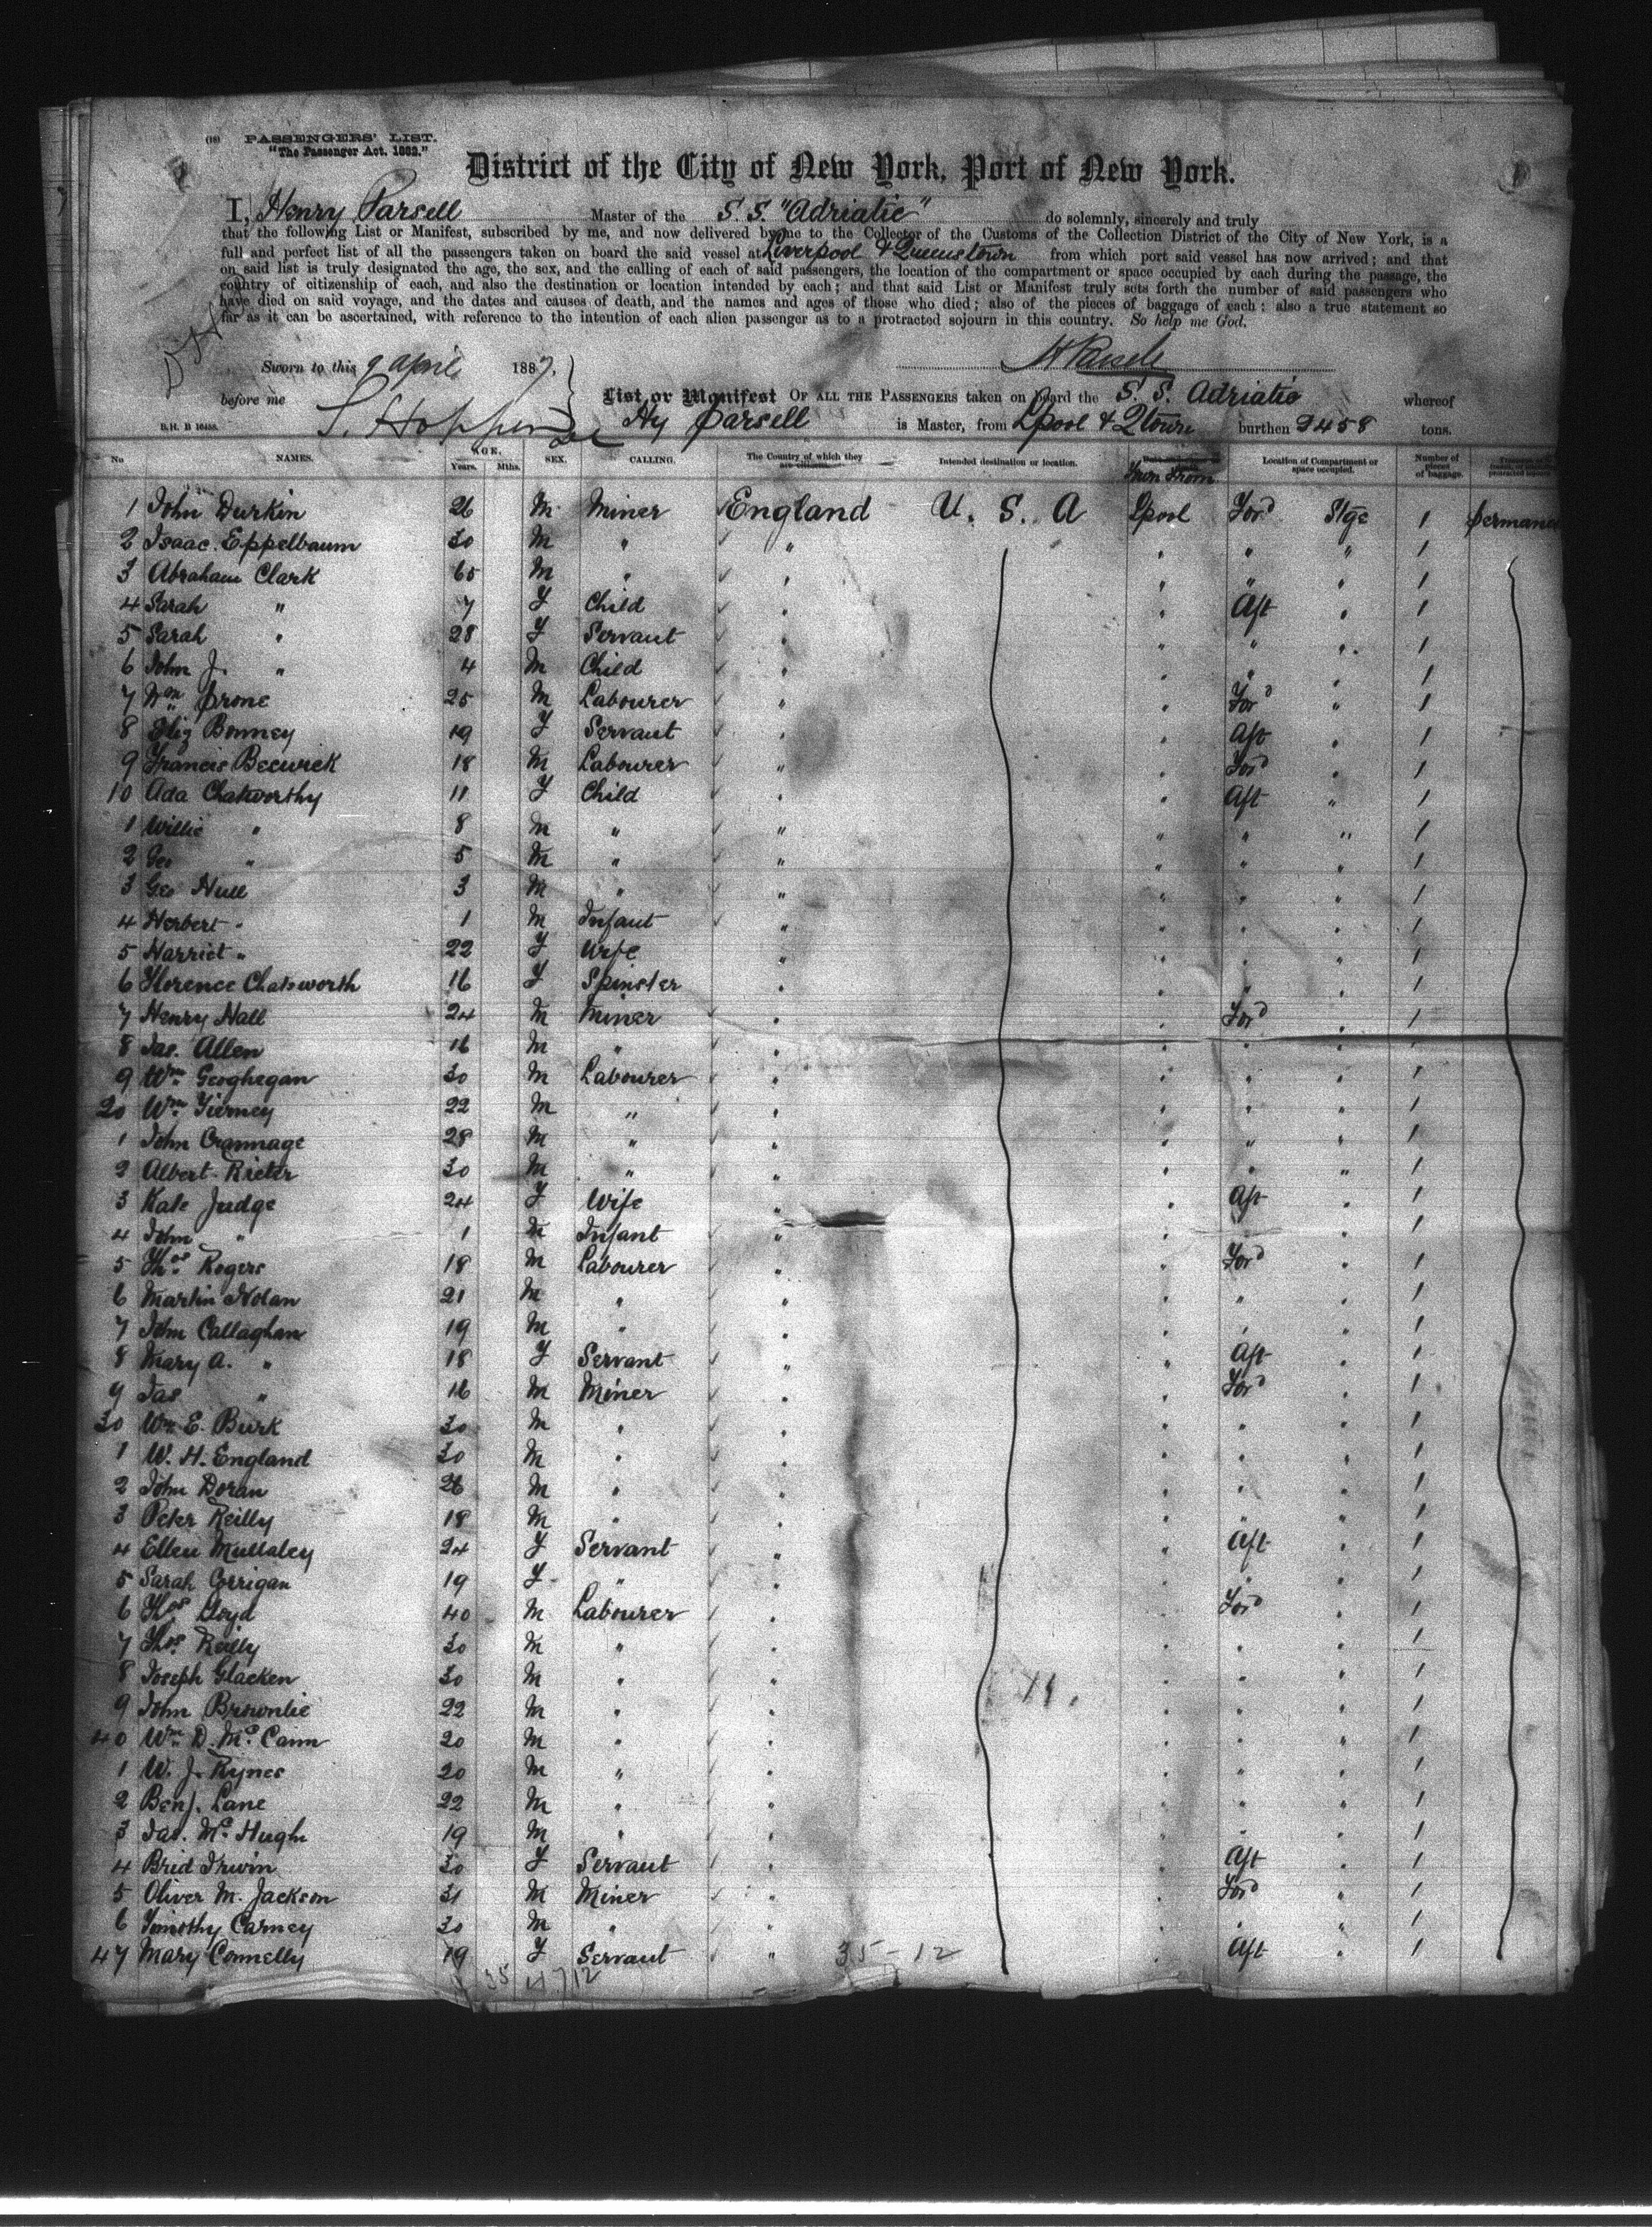 (18) PASSENGERS' LIST.
"The Passenger Act, 1882."
District of the City of New York, Port of New York.
I, Henry Parsell Master of the S. S. "Adriatic" do solemnly, sincerely and truly
that the following List or Manifest, subscribed by me, and now delivered by me to the Collector of the Customs of the Collection District of the City of New York, is a
full and perfect list of all the passengers taken on board the said vessel at Liverpool & Queenstown from which port said vessel has now arrived; and that
on said list is truly designated the age, the sex, and the calling of each of said passengers, the location of the compartment or space occupied by each during the passage, the
country of citizenship of each, and also the destination or location intended by each; and that said List or Manifest truly sets forth the number of said passengers who
have died on said voyage, and the dates and causes of death, and the names and ages of those who died; also of the pieces of baggage of each: also a true statement so
far as it can be ascertained, with reference to the intention of each alien passenger as to a protracted sojourn in this country. So help me God.
Sworn to this 9 April 1887, H Parsell
before me List or Manifest OF ALL THE PASSENGERS taken on board the S. S. Adriatic whereof
B.H. B 10455. Hy Parsell is Master, from Lpool & Qtown burthen 2458 tons.
No NAMES. AGE. Years. Mths. SEX. CALLING. The Country of which they are citizens. Intended destination or location. From Location of Compartment or space occupied. Number of pieces of baggage.
1 John Durkin 26 M Miner England U. S. A Lpool For'd Stge 1
2 Isaac Eppelbaum 30 M " " " " " 1
3 Abraham Clark 65 M " " " " " 1
4 Sarah " 7 F Child " " Aft " 1
5 Sarah " 28 F Servant " " " " 1
6 John J. " 4 M Child " " " " 1
7 Wm Prone 25 M Labourer " " For'd " 1
8 Eliz Bonney 19 F Servant " " Aft " 1
9 Francis Beswick 18 M Labourer " " For'd " 1
10 Ada Chatworthy 11 F Child " " Aft " 1
1 Willie " 8 M " " " " " 1
2 Geo " 5 M " " " " " 1
3 Geo Hull 3 M " " " " " 1
4 Herbert " 1 M Infant " " " " 1
5 Harriet " 22 F Wife " " " " 1
6 Florence Chatsworth 16 F Spinster " " " " 1
7 Henry Hall 24 M Miner " " For'd " 1
8 Jas. Allen 16 M " " " " " 1
9 Wm Geoghegan 30 M Labourer " " " " 1
20 Wm Tierney 22 M " " " " " 1
1 John Crannage 28 M " " " " " 1
2 Albert Rieter 30 M " " " " " 1
3 Kate Judge 24 F Wife " " Aft " 1
4 John " 1 M Infant " " " " 1
5 Thos Rogers 18 M Labourer " " For'd " 1
6 Martin Nolan 21 M " " " " " 1
7 John Callaghan 19 M " " " " " 1
8 Mary A. " 18 F Servant " " Aft " 1
9 Jas " 16 M Miner " " For'd " 1
30 Wm E. Burk 30 M " " " " " 1
1 W. H. England 30 M " " " " " 1
2 John Doran 26 M " " " " " 1
3 Peter Reilly 18 M " " " " " 1
4 Ellen Mullaley 24 F Servant " " Aft " 1
5 Sarah Corrigan 19 F " " " " " 1
6 Thos Lloyd 40 M Labourer " " For'd " 1
7 Thos Reilly 30 M " " " " " 1
8 Joseph Glacken 30 M " " " " " 1
9 John Brownlie 22 M " " " " " 1
40 Wm D. McCann 20 M " " " " " 1
1 W. J. Rynes 20 M " " " " " 1
2 Benj. Lane 22 M " " " " " 1
3 Jas. McHugh 19 M " " " " " 1
4 Brid Irwin 30 F Servant " " Aft " 1
5 Oliver M. Jackson 31 M Miner " " For'd " 1
6 Timothy Carney 30 M " " " " " 1
47 Mary Connelly 19 F Servant " " Aft " 1
35-12